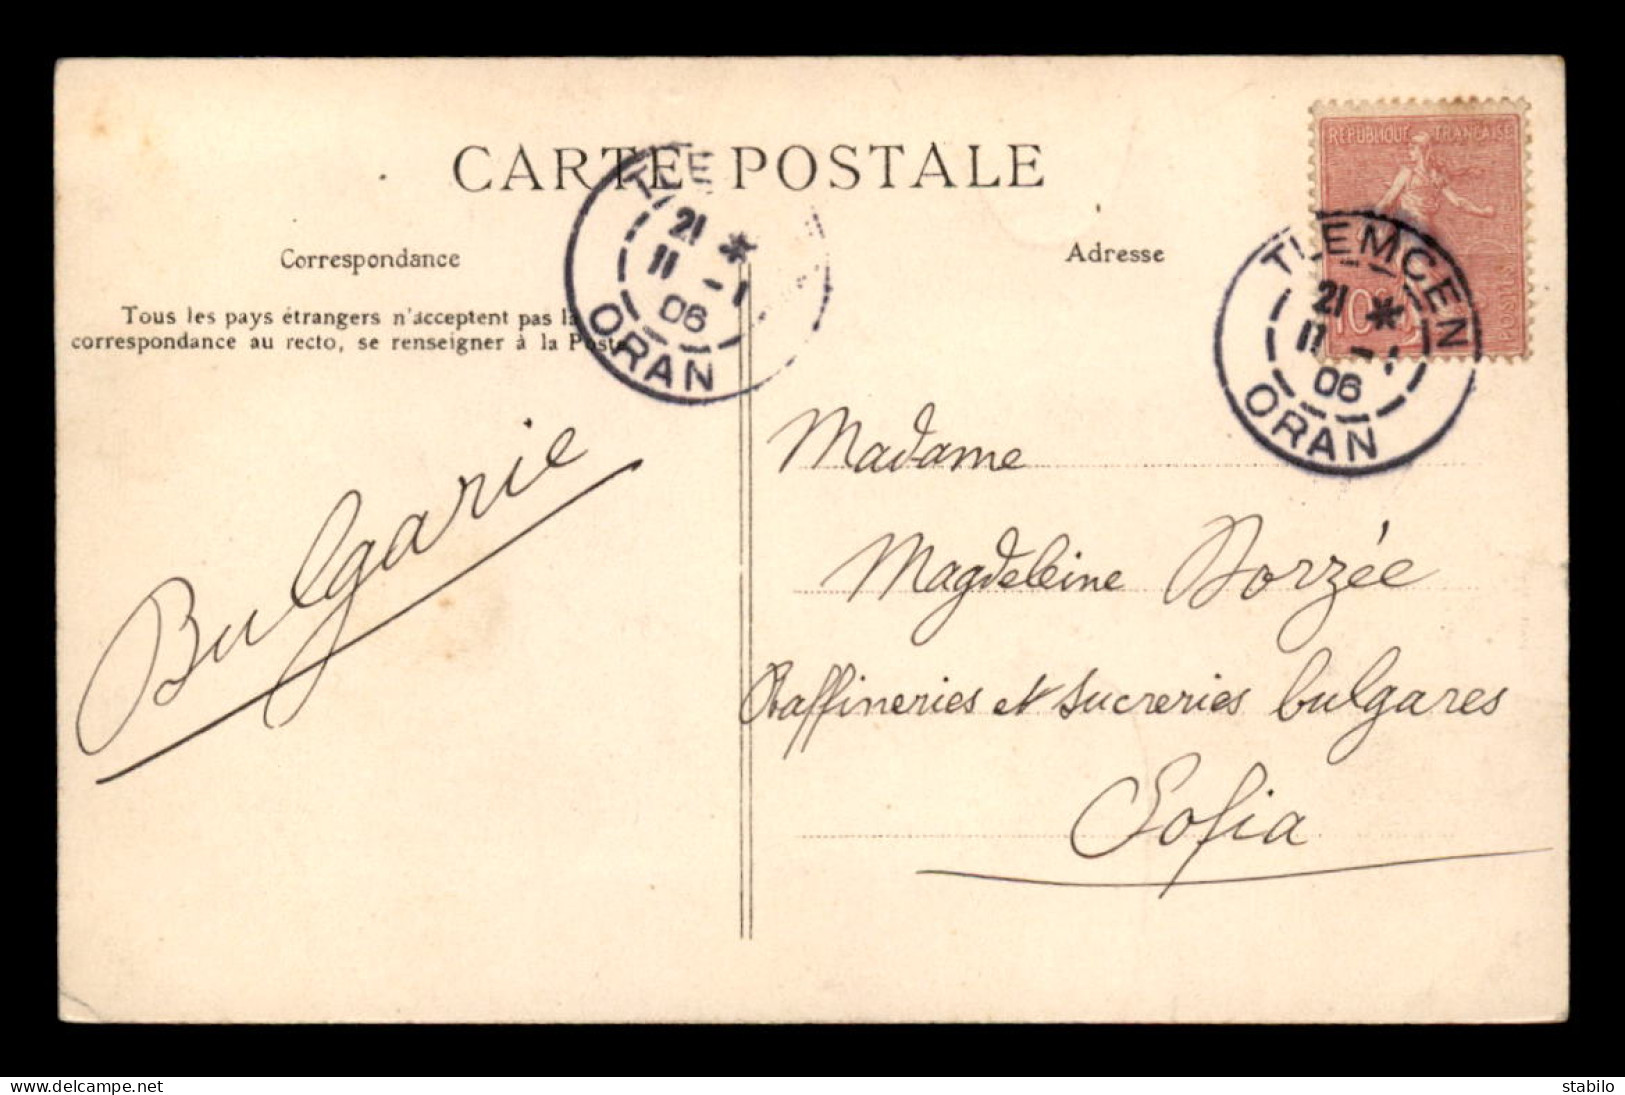 CARTE POSTALE
RÉPUBLIQUE FRANÇAISE
10c
POSTES
TLEMCEN
21 *
11 - 1
06
ORAN
TLE
21 *
11 - 1
06
ORAN
Correspondance
Tous les pays étrangers n'acceptent pas la
correspondance au recto, se renseigner à la Poste
Bulgarie
Adresse
Madame
Magdeleine Dorzée
Raffineries et sucreries bulgares
Sofia
www.delcampe.net
stabilo